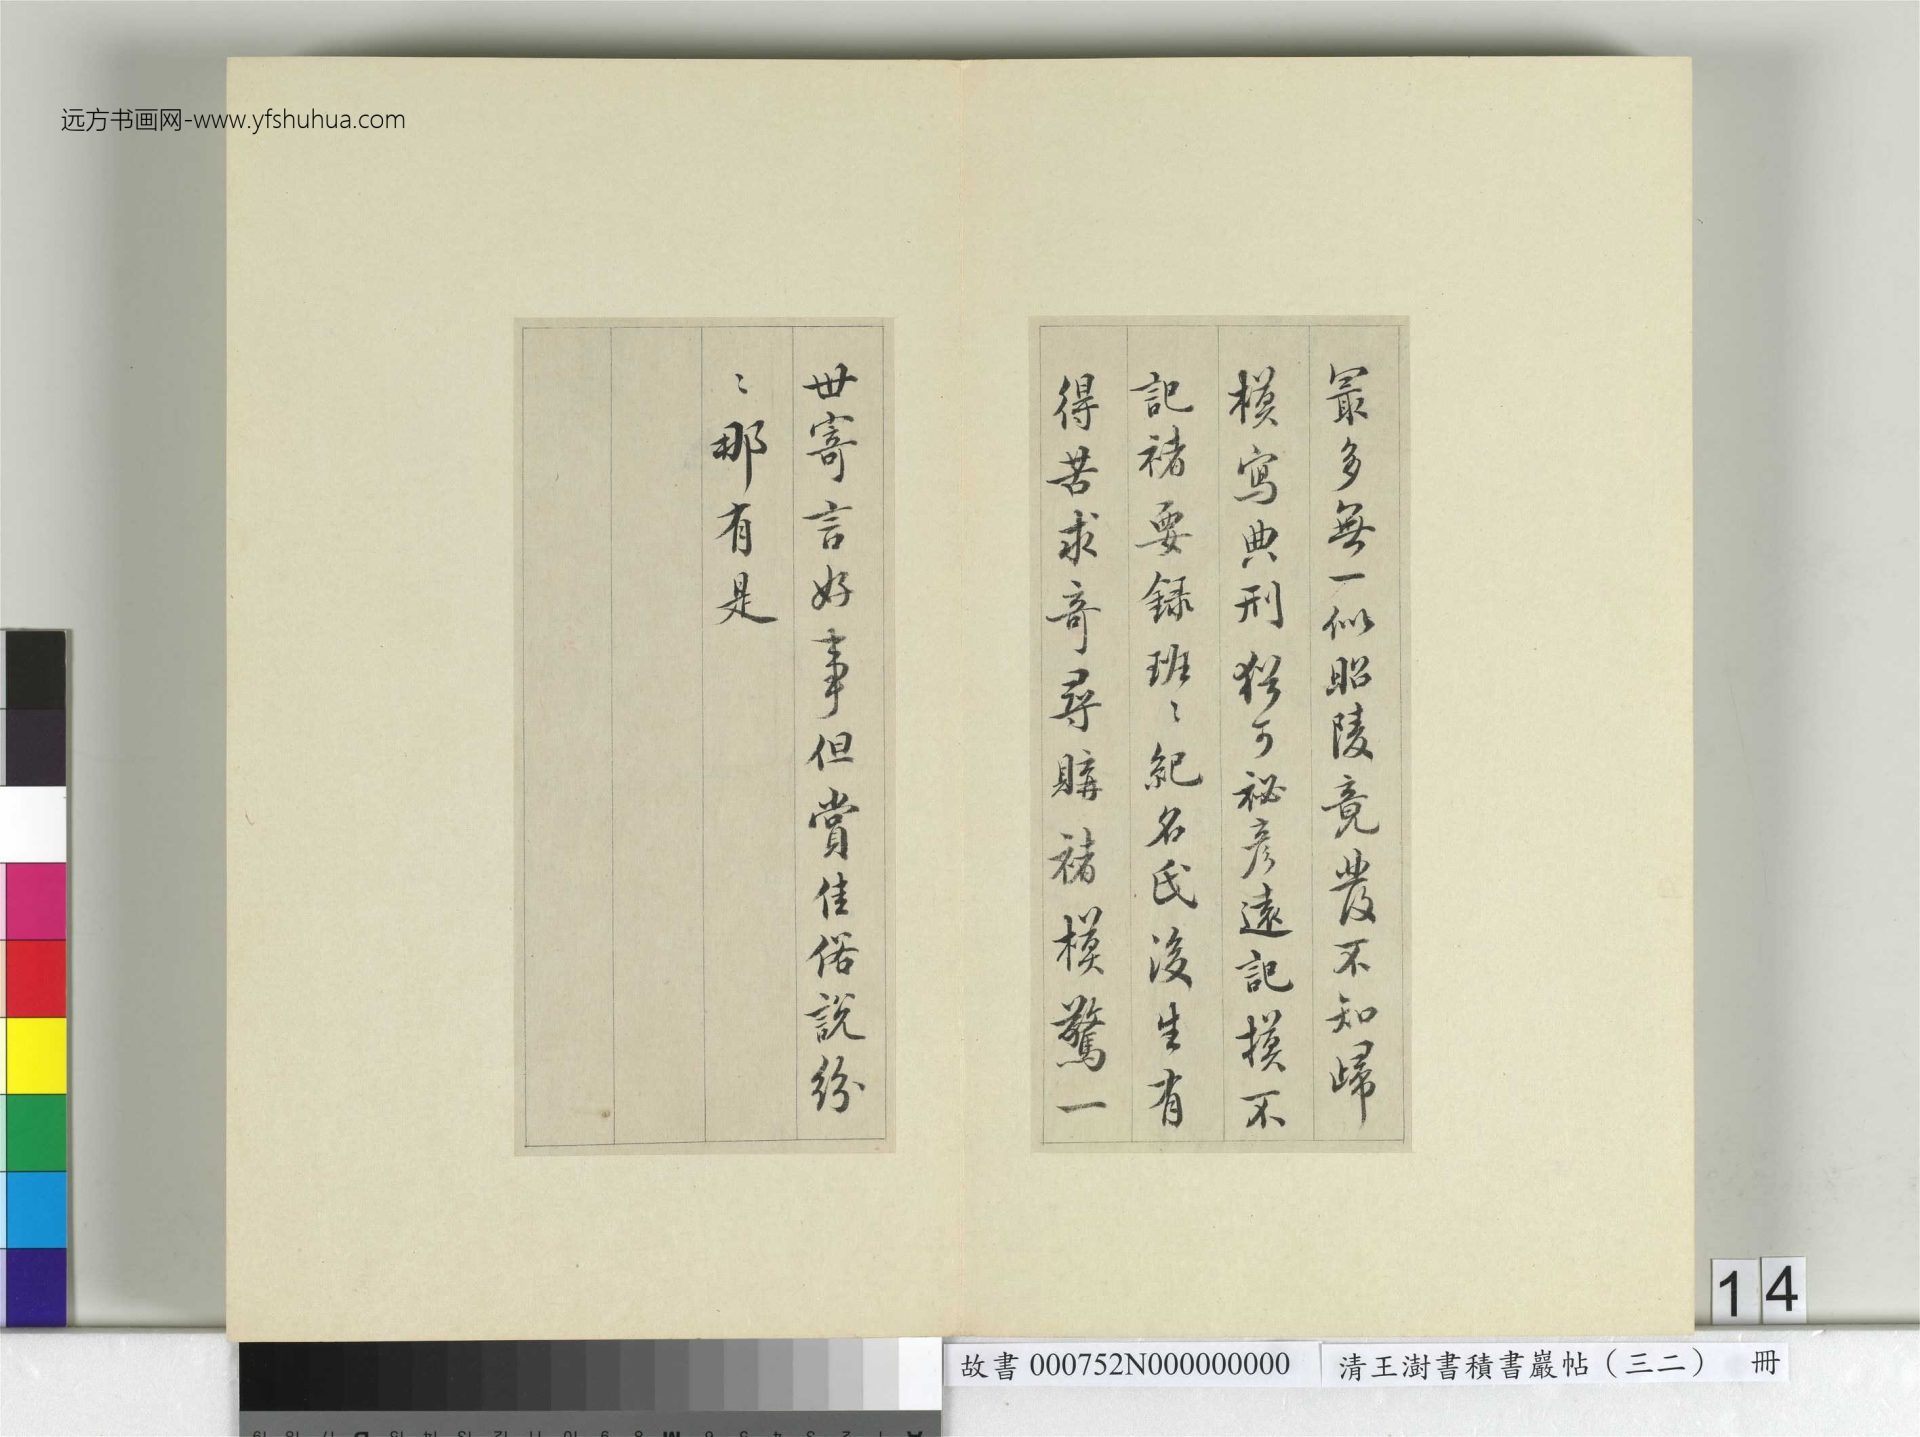 远方书画网-www.yfshuhua.com
冣多無一似昭陵竟發不知歸
模寫典刑猶可祕彥遠記模不
記褚要録班〻紀名氏後生有
得苦求奇尋購褚模驚一
世寄言好事但賞佳俗說紛
〻那有是
14
故書000752N000000000 清王澍書積書巖帖(三二) 冊